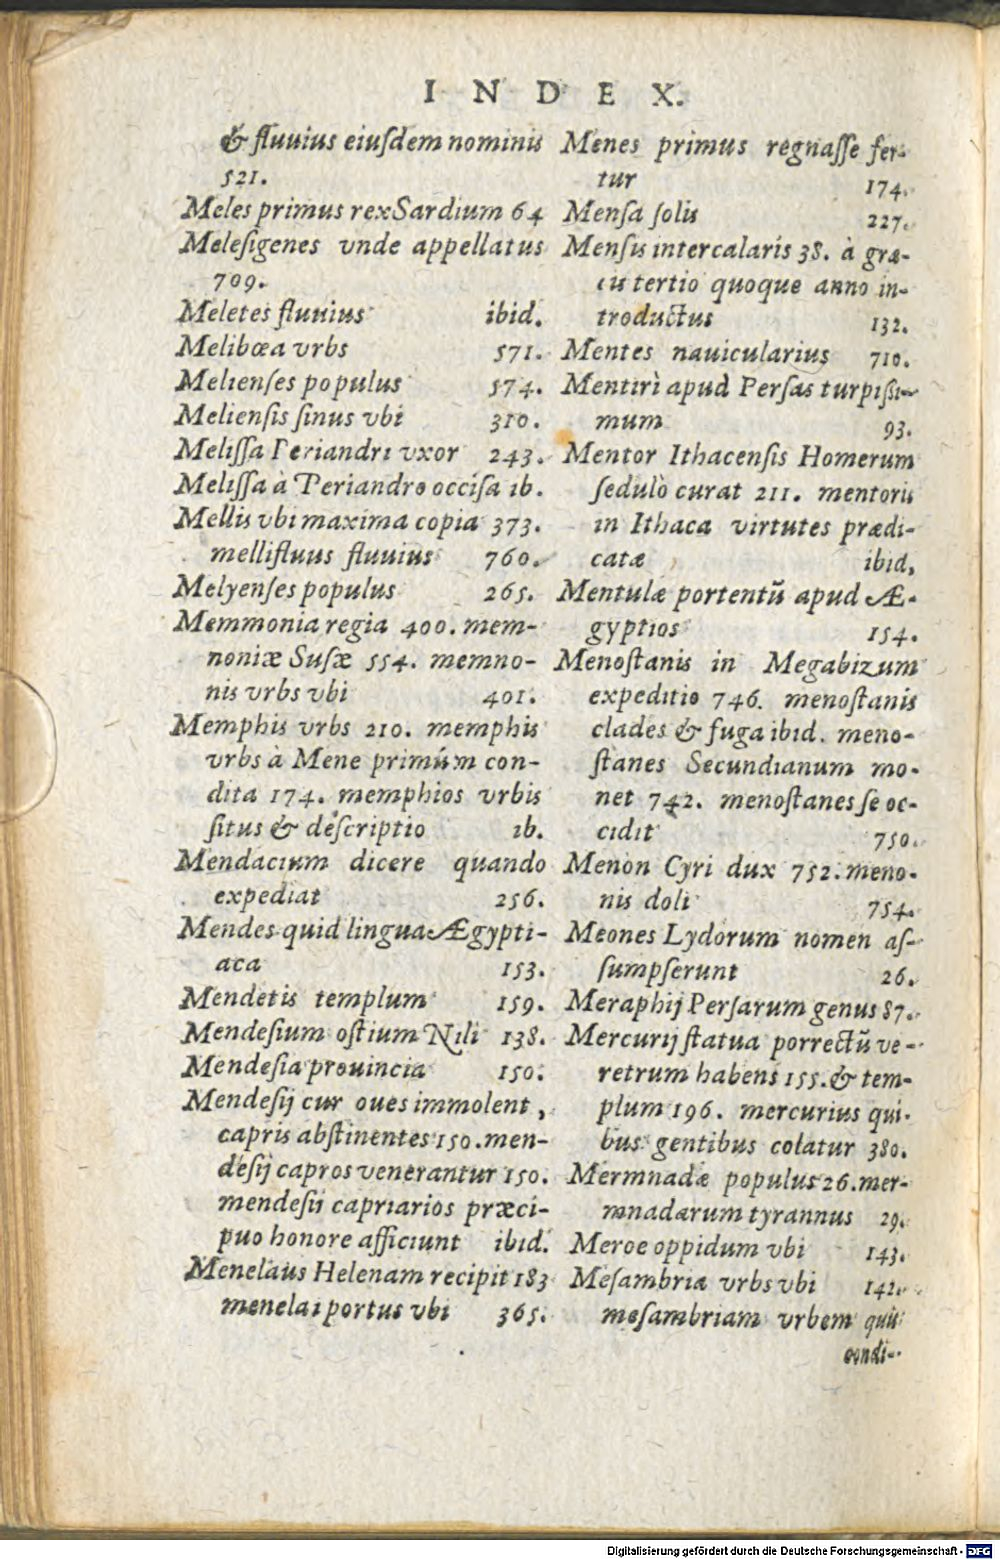 INDEX.
& fluuius eiuſdem nominis
521.
Meles primus rex Sardium 64
Meleſigenes vnde appellatus
709.
Meletes fluuius ibid.
Melibœa vrbs 571.
Melienſes populus 574.
Melienſis ſinus vbi 310.
Meliſſa Periandri vxor 243.
Meliſſa à Periandro occiſa ib.
Mellis vbi maxima copia 373.
mellifluus fluuius 760.
Melyenſes populus 265.
Memmonia regia 400. mem-
noniæ Suſæ 554. memno-
nis vrbs vbi 401.
Memphis vrbs 210. memphis
vrbs à Mene primúm con-
dita 174. memphios vrbis
ſitus & deſcriptio ib.
Mendacium dicere quando
expediat 256.
Mendes quid lingua Ægypti-
aca 153.
Mendetis templum 159.
Mendeſium oſtium Nili 138.
Mendeſia prouincia 150.
Mendeſij cur oues immolent,
capris abſtinentes 150. men-
deſij capros venerantur 150.
mendeſii capriarios præci-
puo honore afficiunt ibid.
Menelaus Helenam recipit 183
menelai portus vbi 365.
Menes primus regnaſſe fer-
tur 174.
Menſa ſolis 227.
Menſis intercalaris 38. à græ-
cis tertio quoque anno in-
troductus 132.
Mentes nauicularius 710.
Mentiri apud Perſas turpiſsi-
mum 93.
Mentor Ithacenſis Homerum
ſedulò curat 211. mentoris
in Ithaca virtutes prædi-
catæ ibid,
Mentulæ portentũ apud Æ-
gyptios 154.
Menoſtanis in Megabizum
expeditio 746. menoſtanis
clades & fuga ibid. meno-
ſtanes Secundianum mo-
net 742. menoſtanes ſe oc-
cidit 750.
Menon Cyri dux 752. meno-
nis doli 754.
Meones Lydorum nomen aſ-
ſumpſerunt 26.
Meraphij Perſarum genus 87.
Mercurij ſtatua porrectũ ve-
retrum habens 155. & tem-
plum 196. mercurius qui-
bus gentibus colatur 380.
Mermnadæ populus 26. mer-
mnadarum tyrannus 29.
Meroe oppidum vbi 143.
Meſambria vrbs vbi 142.
meſambriam vrbem quis
condi-
Digitalisierung gefördert durch die Deutsche Forschungsgemeinschaft - DFG